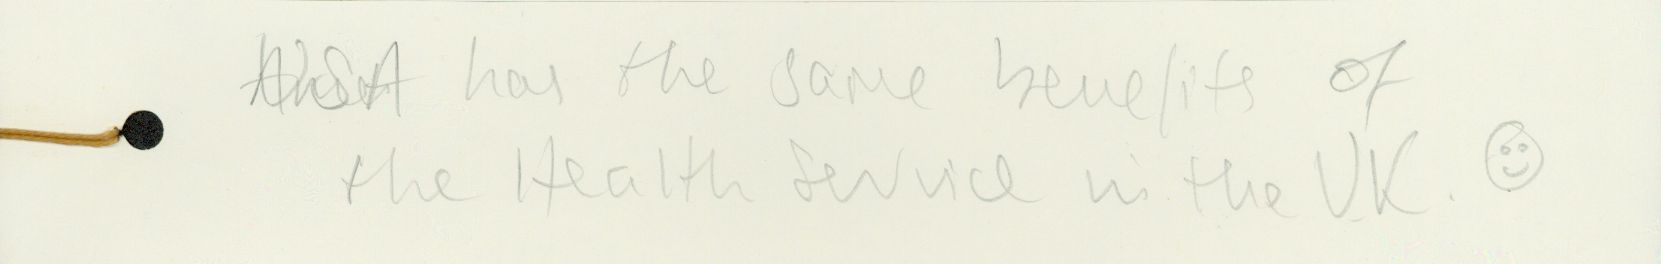 has the same benefits of
the Health Service in the UK.